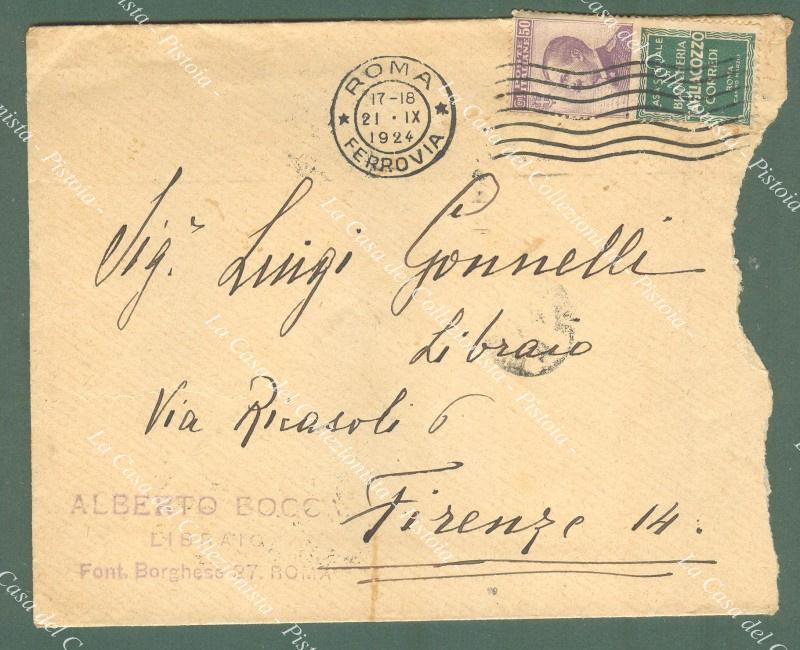 ROMA
17-18
21 · IX
1924
FERROVIA
POSTE ITALIANE 50
ASS. SPECIALE
BIANCHERIA
TAGLIACOZZO
CORREDI
ROMA
Sigr. Luigi Gonnelli
Libraio
Via Ricasoli 6
Firenze 14.
ALBERTO BOCCA
LIBRAIO
Font. Borghese 27. ROMA
La Casa del Collezionista - Pistoia -